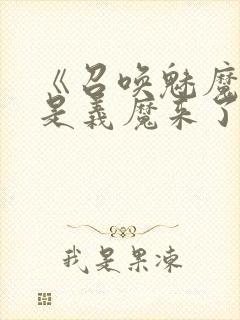 《召唤魅魔
是义魔来了
我是果冻